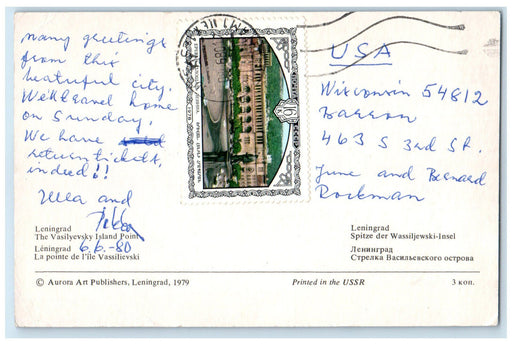 many greetings
from this
beatriful city.
We'll travel home
on Sunday.
We have
return tickets,
indeed!!
Ulla and
6.6.-80
USA
Wisconsin 54812
Barron
463 S 3rd St.
June and Bernard
Rockman
Leningrad
The Vasilyevsky Island Point
Léningrad
La pointe de l'île Vassilievski
Leningrad
Spitze der Wassiljewski-Insel
Ленинград
Стрелка Васильевского острова
© Aurora Art Publishers, Leningrad, 1979
Printed in the USSR
3 коп.